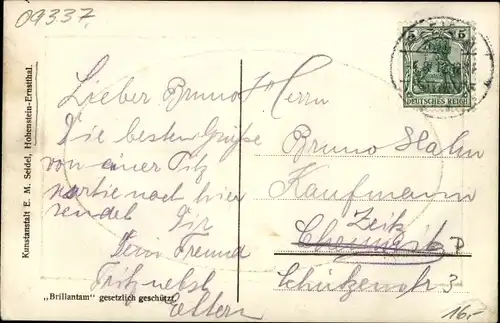 09337
Kunstanstalt E. M. Seidel, Hohenstein-Ernstthal.
5 5
DEUTSCHES REICH
Lieber Bruno!
Die besten Grüße
von einer
partie nach hier
sendet Dir
Dein Freund
Fritz nebst
Eltern
„Brillantam" gesetzlich geschützt.
Herrn
Bruno Hahn
Kaufmann
Zeitz
Chemnitz
Schützenstr 3
16.-